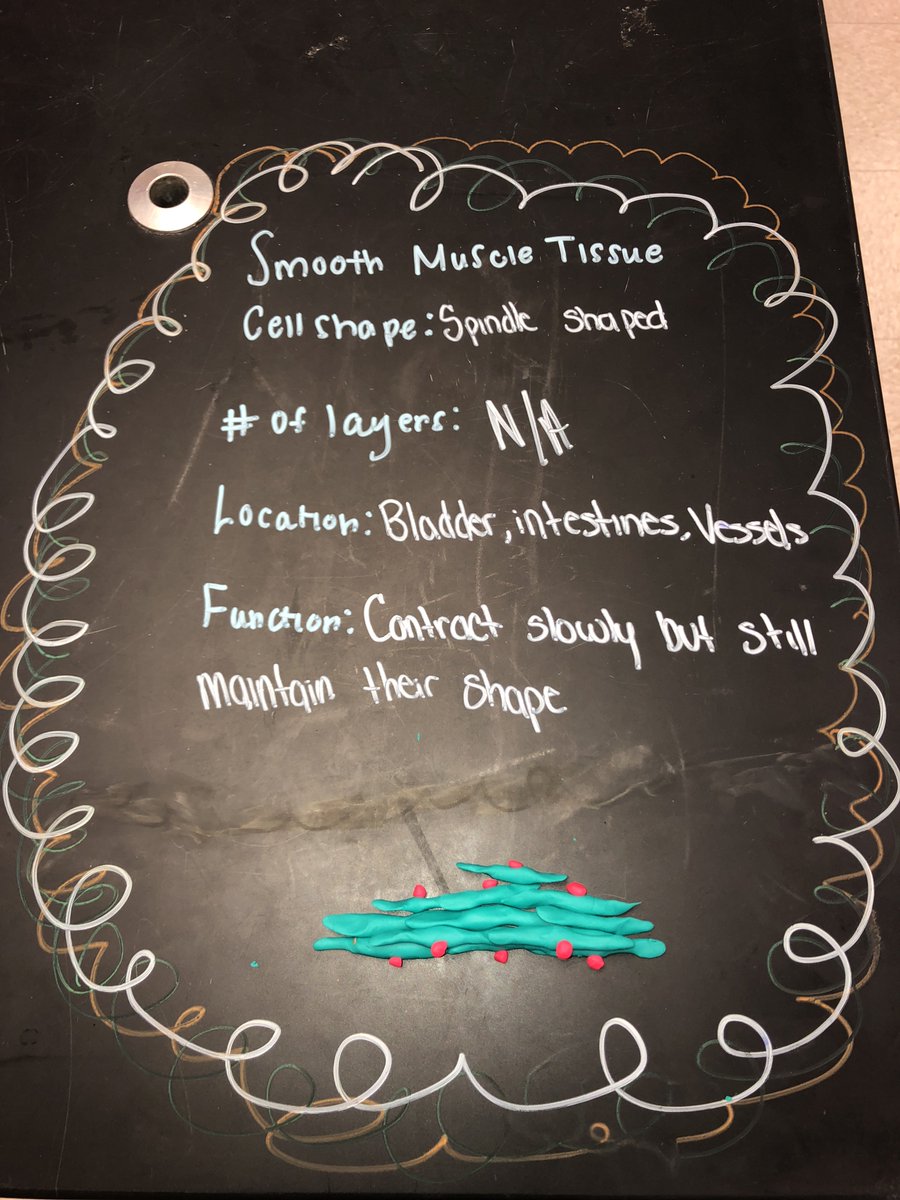 Smooth Muscle Tissue
Cell shape: Spindle shaped
# of layers: N/A
Location: Bladder, intestines, Vessels
Function: Contract slowly but still
maintain their shape